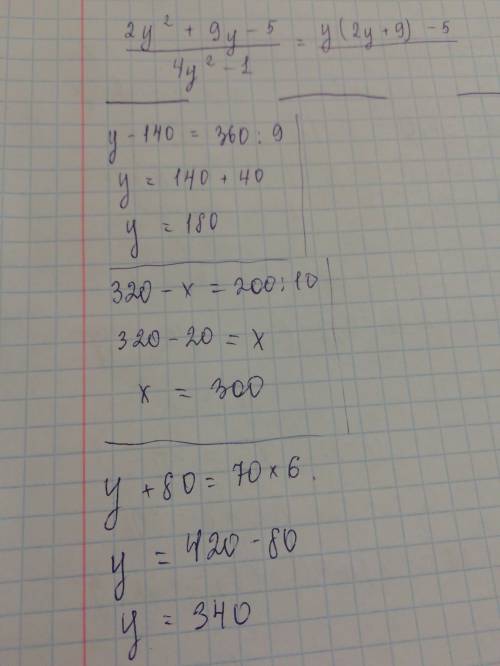 2y² + 9y - 5 / 4y² - 1 = y(2y+9) - 5
y - 140 = 360 : 9
y = 140 + 40
y = 180
320 - x = 200 : 10
320 - 20 = x
x = 300
y + 80 = 70 × 6.
y = 420 - 80
y = 340